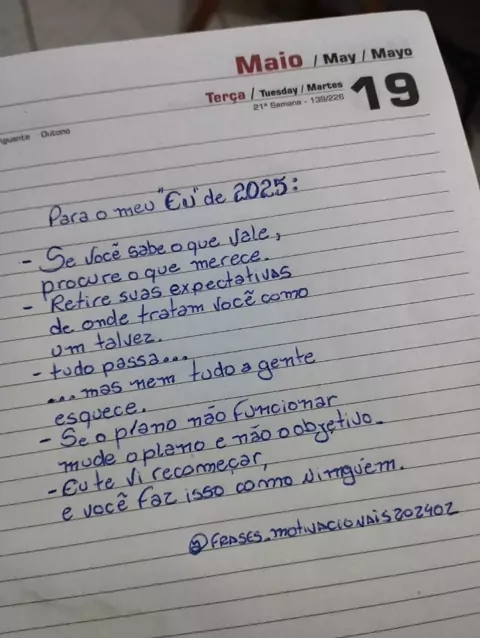 Maio / May / Mayo
Terça / Tuesday / Martes
19
21ª Semana - 139/226
Outono
Para o meu "Eu" de 2025:
- Se você sabe o que vale,
procure o que merece.
- Retire suas expectativas
de onde tratam você como
um talvez.
- tudo passa....
....mas nem tudo a gente
esquece.
- Se o plano não funcionar
mude o plano e não o objetivo.
- Eu te vi recomeçar,
e você faz isso como ninguém.
@FRASES_MOTIVACIONAIS202402